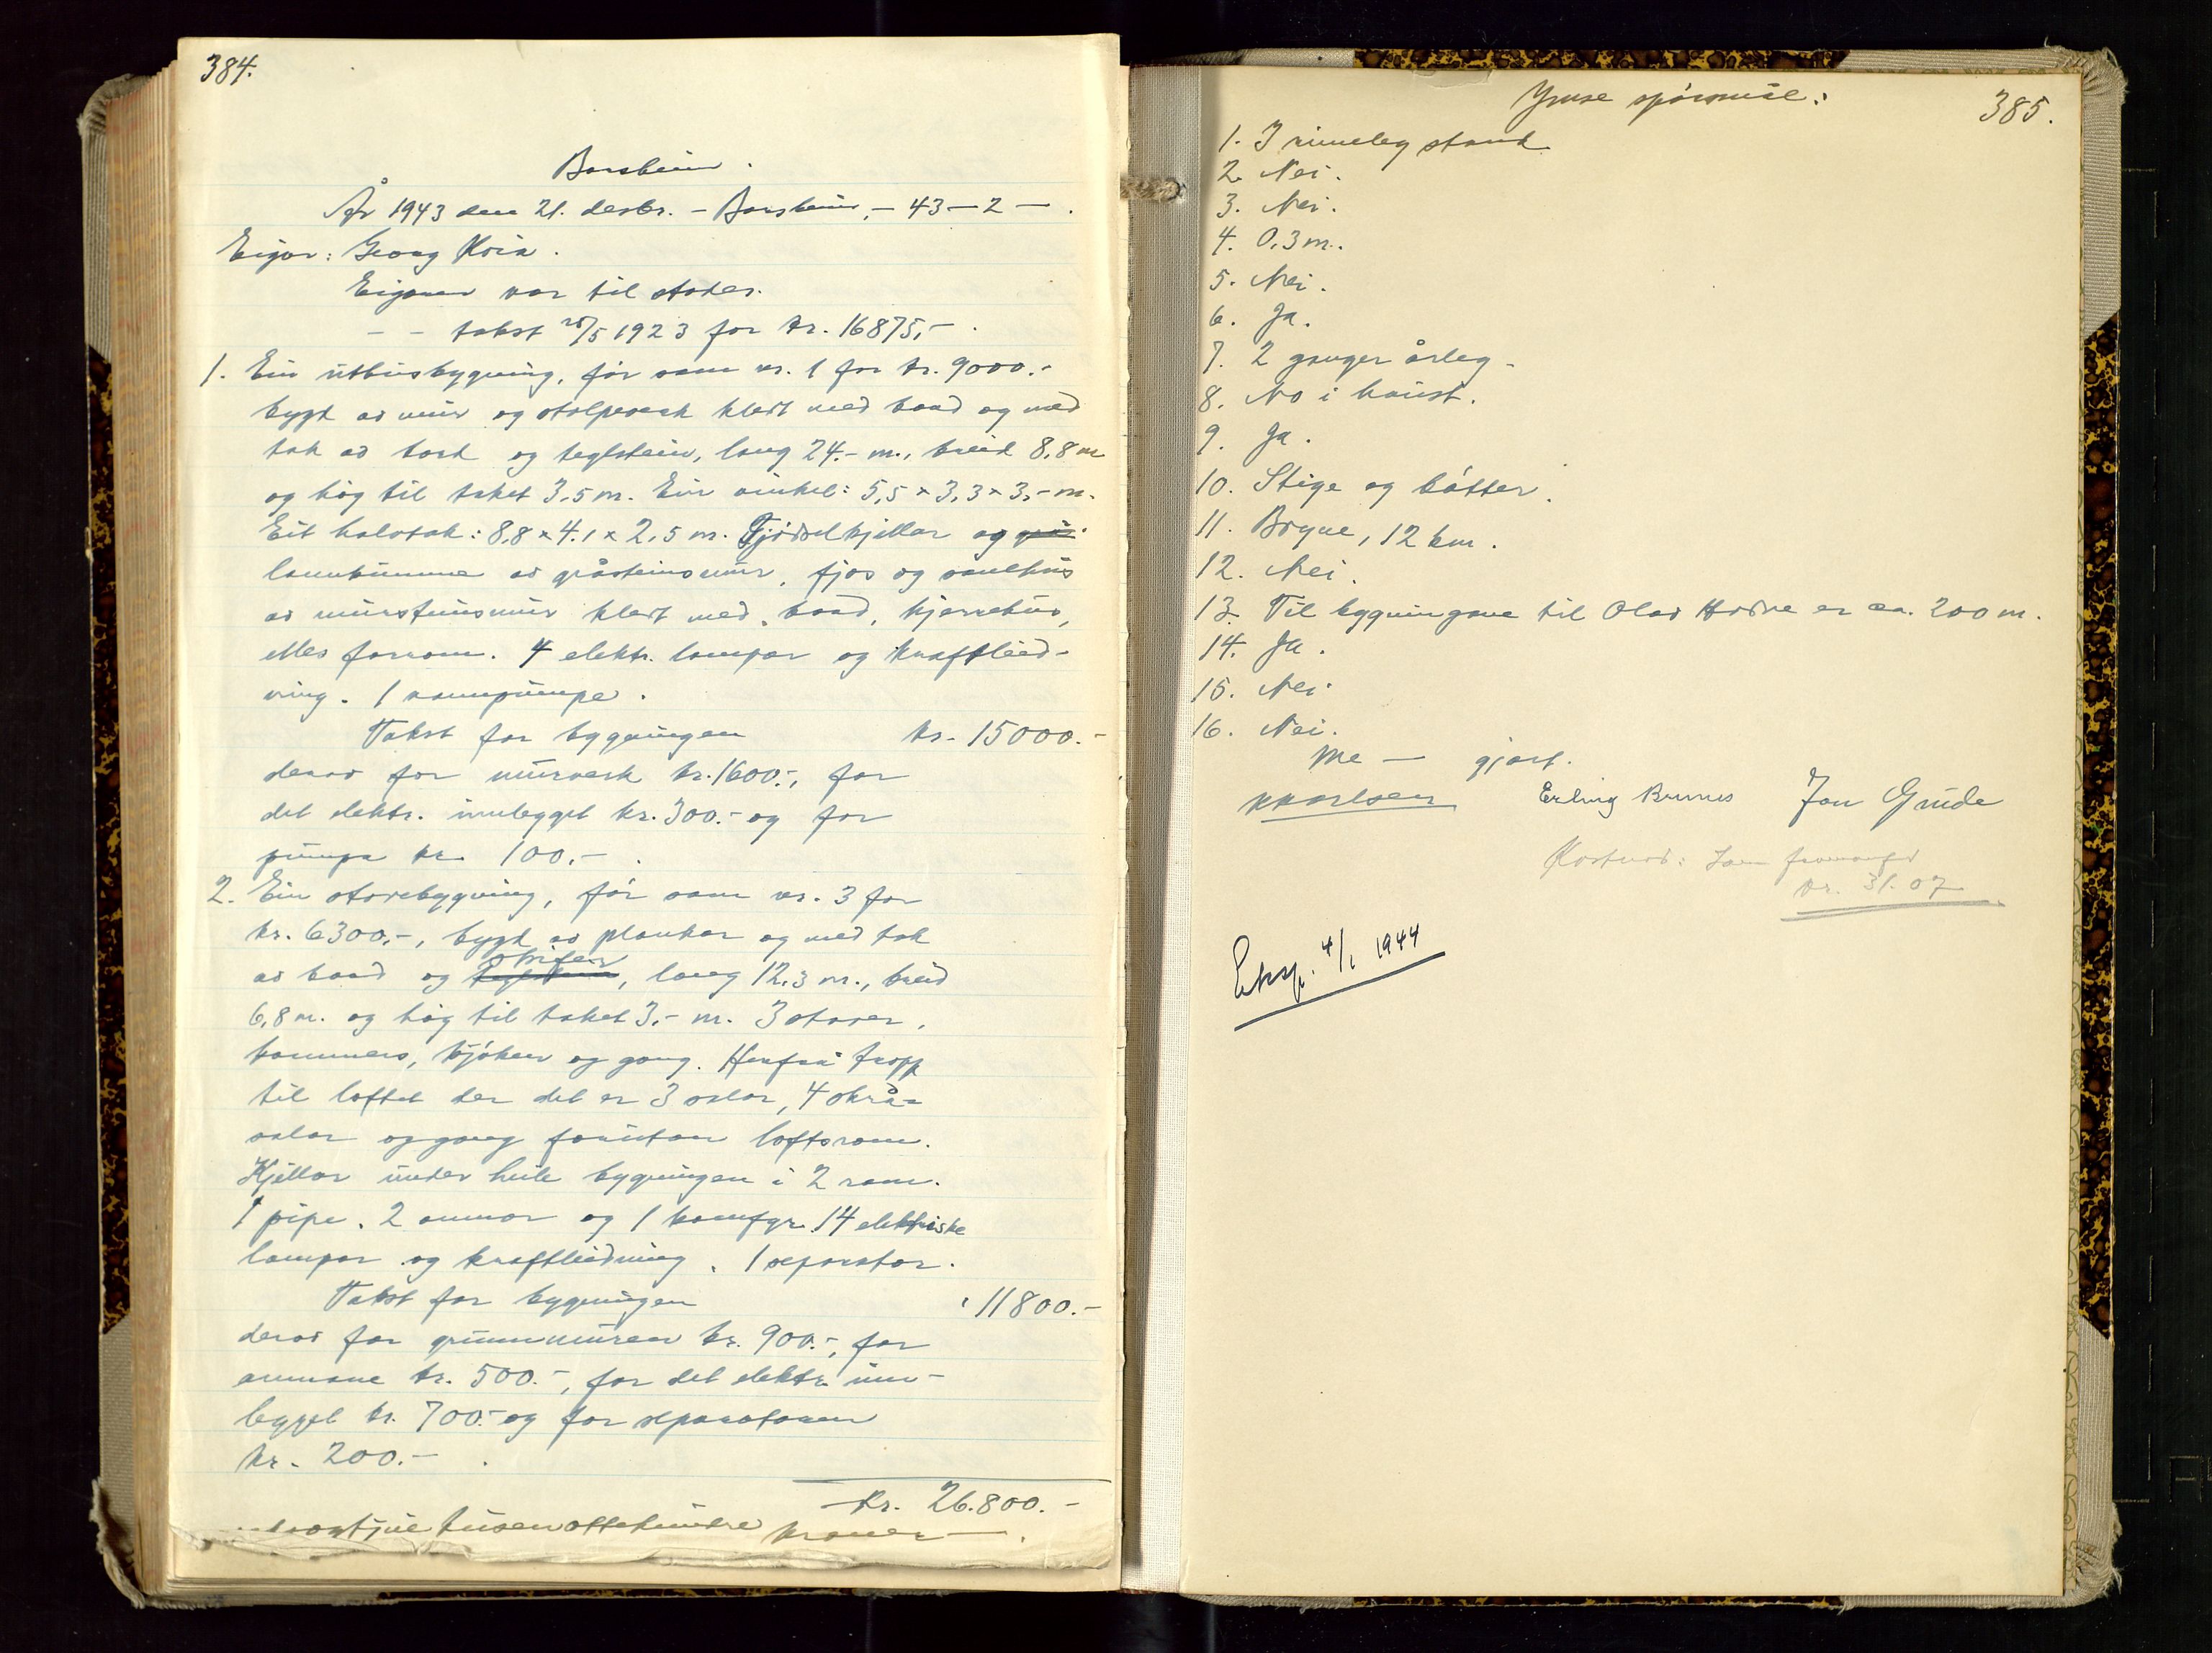 384.
Borsheim.
År 1943 den 21. desbr. – Borsheim, – 43 – 2 – .
Eigar: Georg Kvia.
Eigaren var til stades.
– – takst 25/5 1923 for kr. 16875,- .
1. Ein uthusbygning, før som nr. 1 for kr. 9000.-
bygt av mur og stolpeverk kledt med bord og med
tak av bord og teglstein, lang 24.- m., breid 8,8 m
og høg til taket 3,5 m. Ein vinkel: 5,5 x 3,3 x 3,- m.
Eit halvtak: 8,8 x 4.1 x 2,5 m. Gjødselkjellar og
lannkumme av gråsteinsmur, fjos og sauehus
av mursteinsmur kledt med bord, kjerrehus,
elles forrom. 4 elektr. lampar og kraftleid-
ning. 1 vannpumpe.
Takst for bygningen kr. 15000.-
derav for murverk kr. 1600.-, for
det elektr. innlegget kr. 300.- og for
pumpa kr. 100,- .
2. Ein stovebygning, før som nr. 3 for
kr. 6300,-, bygt av plankar og med tak
av bord og skifer, lang 12,3 m., breid
6,8 m. og høg til taket 3,- m. 3 stover,
kammers, kjøken og gang. Herfrå tropp
til loftet der det er 3 salar, 4 skrå-
salar og gang foruten loftsrom.
Kjellar under heile bygningen i 2 rom.
1 pipe, 2 omnar og 1 komfyr. 14 elektriske
lampar og kraftleidning. 1 separator.
Takst for bygningen " 11800.-
derav for grunnmuren kr. 900.-, for
omnane kr. 500.-, for det elektr. inn-
legget kr. 700.- og for separatoren
kr. 200.- .
kr. 26.800.-
tjue tusen ottehundre kroner — .
385.
Ymse spørsmål:
1. I rimeleg stand
2. Nei.
3. Nei.
4. 0,3 m.
5. Nei.
6. Ja.
7. 2 ganger årleg.
8. No i haust.
9. Ja.
10. Stige og bøtter.
11. Bryne, 12 km.
12. Nei.
13. Til bygningane til Olav Hodne er ca. 200 m.
14. Ja.
15. Nei.
16. Nei.
Me — gjort.
Erling Jon Grude
Kostnad:
kr. 31.07
Eksp. 4/1 1944